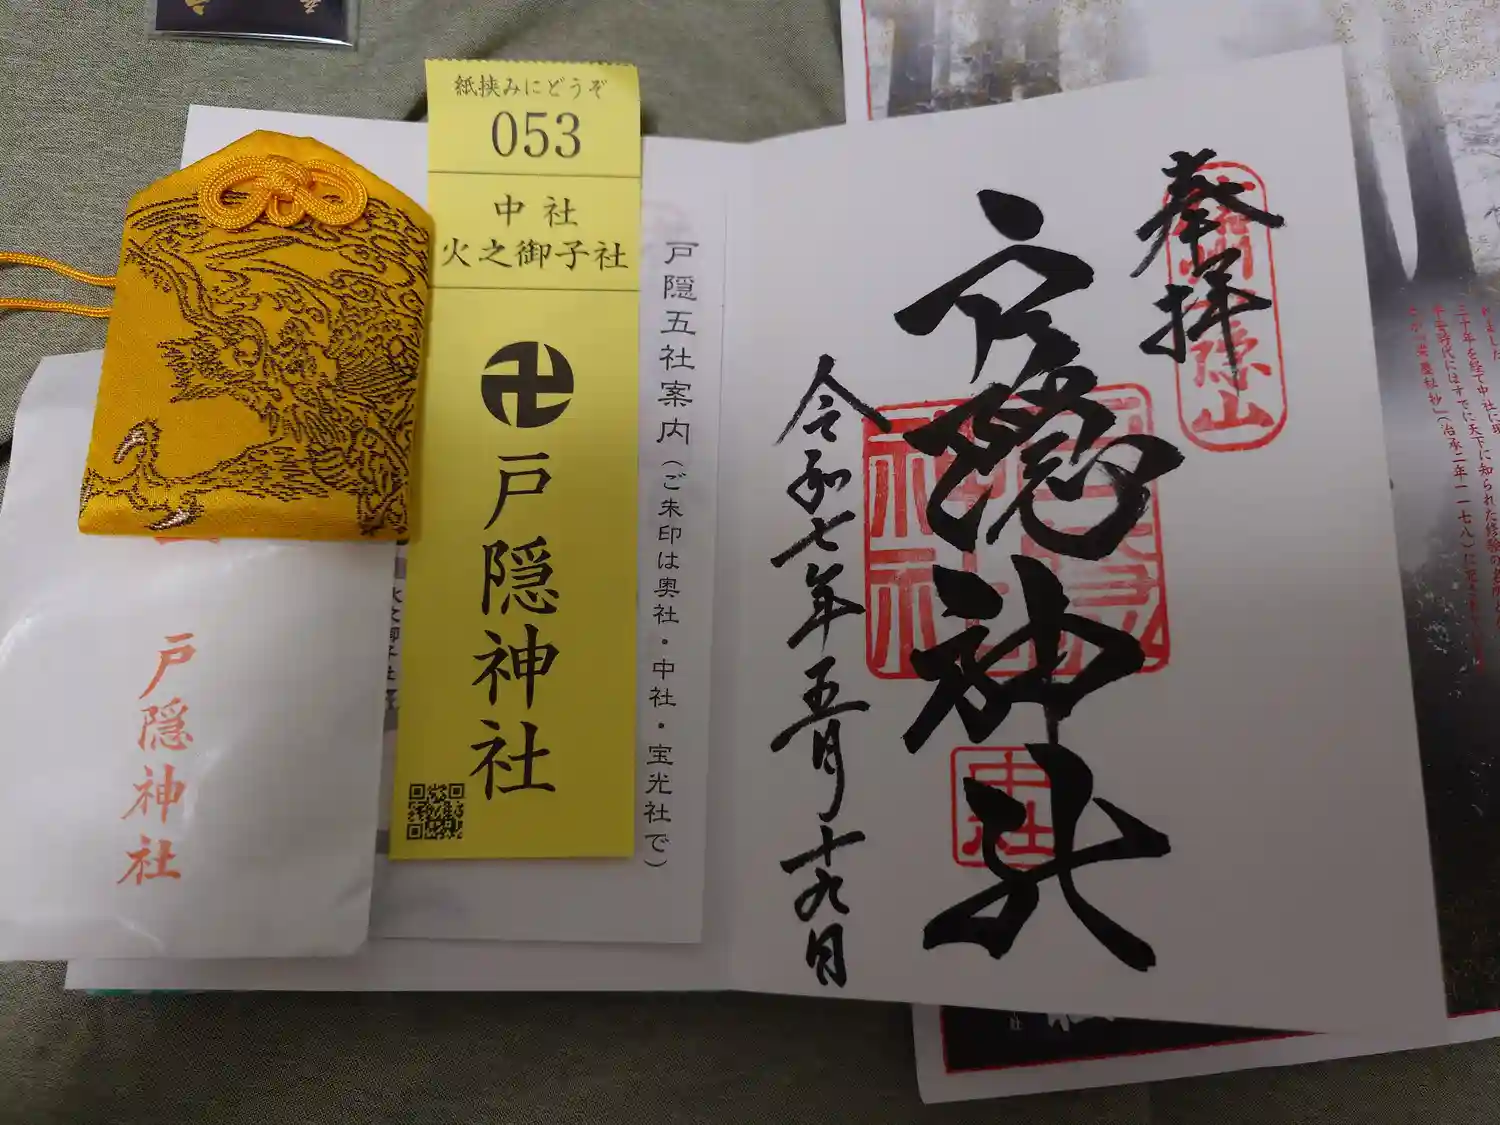 紙挟みにどうぞ
053
中社
火之御子社
卍
戸隠神社
戸隠五社案内（ご朱印は奥社・中社・宝光社で）
戸隠神社
奉拝
戸隠山
戸隠神社
中社
令和七年五月十九日
三十年を経て中社に
平安時代にはすでに天下に知られた修験の
（治承二年一一七八）に